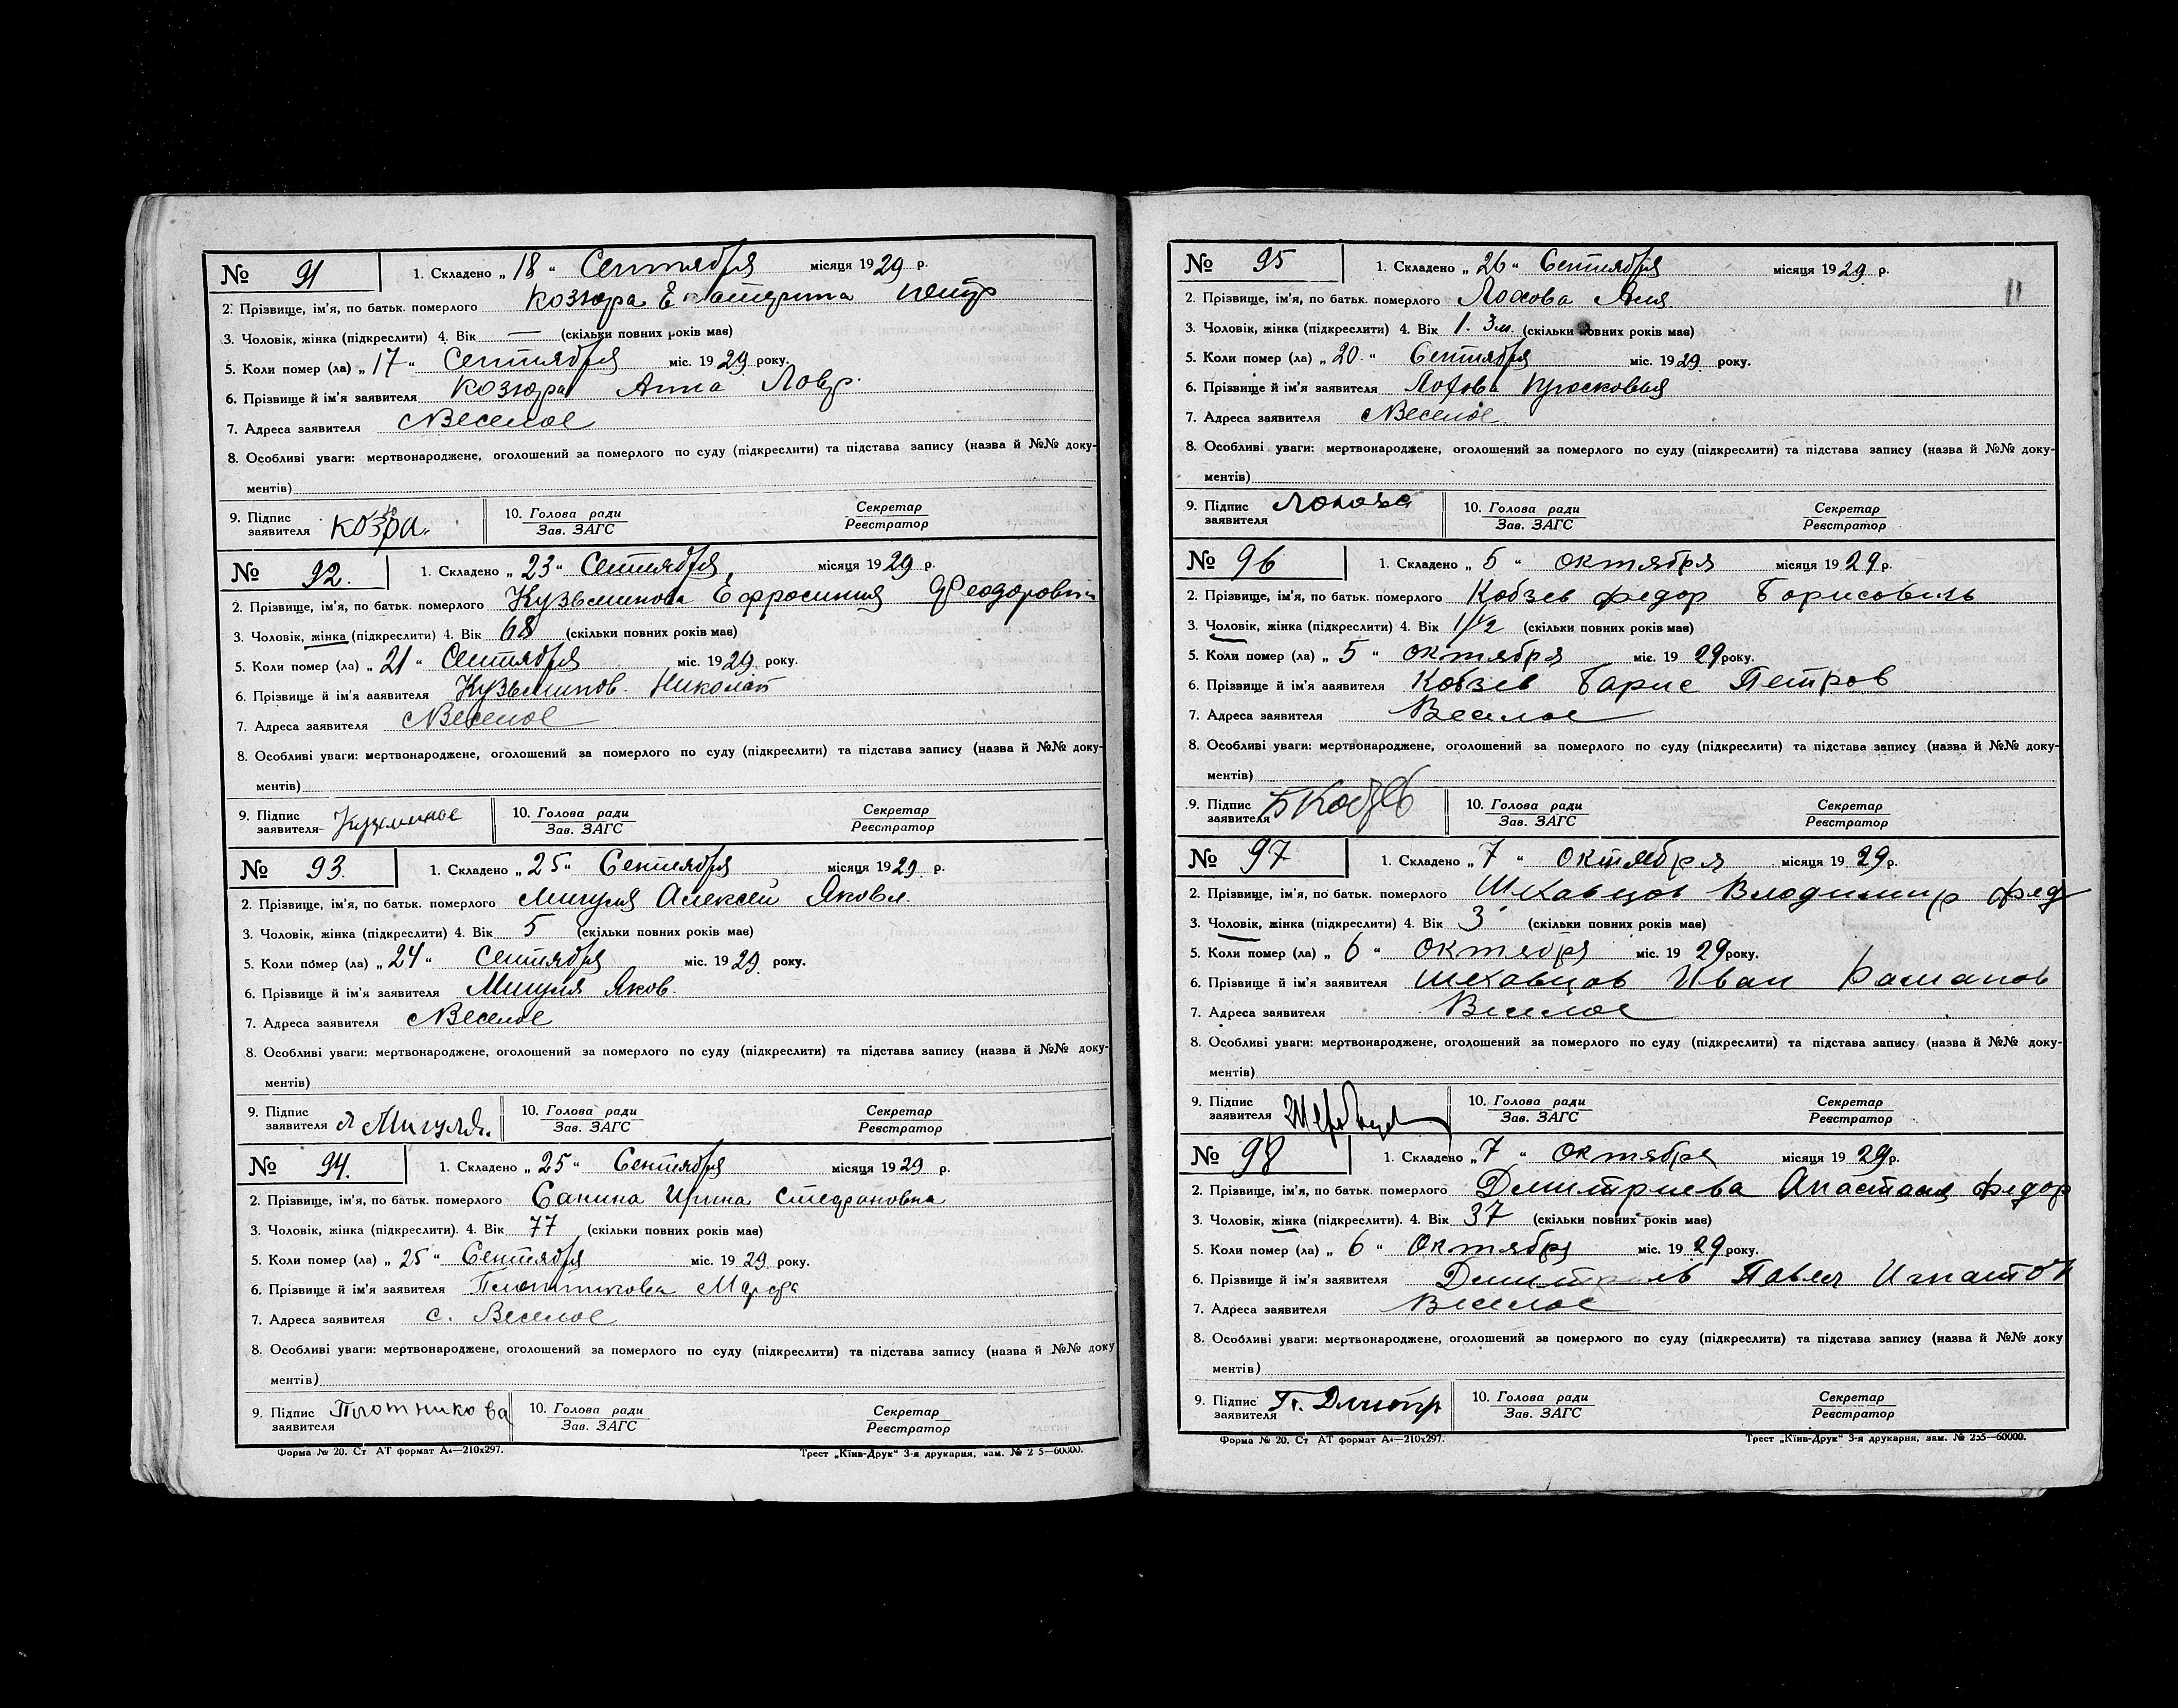 № 91 1. Складено „18“ Сентября місяця 1929 р.
2. Прізвище, ім'я, по батьк. померлого Козюра Екатерина петр
3. Чоловік, жінка (підкреслити) 4. Вік — (скільки повних років має)
5. Коли помер (ла) „17“ Сентября міс. 1929 року.
6. Прізвище й ім'я заявителя Козюра Анна Лавр.
7. Адреса заявителя с Веселое
8. Особливі уваги: мертвонароджене, оголошений за померлого по суду (підкреслити) та підстава запису (назва й №№ доку-
ментів)
9. Підпис заявителя 10. Голова ради Секретар
Зав. ЗАГС Реєстратор
№ 92. 1. Складено „23“ Сентября місяця 1929 р.
2. Прізвище, ім'я, по батьк. померлого Кузьминова Ефросиния Феодоровна
3. Чоловік, жінка (підкреслити) 4. Вік 68 (скільки повних років має)
5. Коли помер (ла) „21“ Сентября міс. 1929 року.
6. Прізвище й ім'я заявителя Кузьминов. Николай
7. Адреса заявителя с Веселое
8. Особливі уваги: мертвонароджене, оголошений за померлого по суду (підкреслити) та підстава запису (назва й №№ доку-
ментів)
9. Підпис заявителя Кузминов 10. Голова ради Секретар
Зав. ЗАГС Реєстратор
№ 93. 1. Складено „25“ Сентября місяця 1929 р.
2. Прізвище, ім'я, по батьк. померлого Мигуля Алексей Яковл.
3. Чоловік, жінка (підкреслити) 4. Вік 5 (скільки повних років має)
5. Коли помер (ла) „24“ Сентября міс. 1929 року.
6. Прізвище й ім'я заявителя Мигуля Яков.
7. Адреса заявителя с Веселое
8. Особливі уваги: мертвонароджене, оголошений за померлого по суду (підкреслити) та підстава запису (назва й №№ доку-
ментів)
9. Підпис заявителя Я Мигуля. 10. Голова ради Секретар
Зав. ЗАГС Реєстратор
№ 94. 1. Складено „25“ Сентября місяця 1929 р.
2. Прізвище, ім'я, по батьк. померлого Санина Ирина Стефановна
3. Чоловік, жінка (підкреслити). 4. Вік 77 (скільки повних років має)
5. Коли помер (ла) „25“ Сентября міс. 1929 року.
6. Прізвище й ім'я заявителя Плотникова
7. Адреса заявителя с. Веселое
8. Особливі уваги: мертвонароджене, оголошений за померлого по суду (підкреслити) та підстава запису (назва й №№ доку
ментів)
9. Підпис заявителя Плотникова 10. Голова ради Секретар
Зав. ЗАГС Реєстратор
Форма № 20. Ст АТ формат А4—210х297. Трест „Київ-Друк“ 3-я друкарня, зам. № 2 5—60000.
11
№ 95 1. Складено „26“ Сентября місяця 1929. р.
2. Прізвище, ім'я, по батьк. померлого Лохова
3. Чоловік, жінка (підкреслити) 4. Вік 1. 3м. (скільки повних років має)
5. Коли помер (ла) „20.“ Сентября міс. 1929 року.
6. Прізвище й ім'я заявителя Лохова Прасковья
7. Адреса заявителя с Веселое.
8. Особливі уваги: мертвонароджене, оголошений за померлого по суду (підкреслити) та підстава запису (назва й №№ доку-
ментів)
9. Підпис заявителя Лохова 10. Голова ради Секретар
Зав. ЗАГС Реєстратор
№ 96 1. Складено „5“ октября місяця 1929 р.
2. Прізвище, ім'я, по батьк. померлого Кобзев федор Борисовичь
3. Чоловік, жінка (підкреслити) 4. Вік 1 1/2 (скільки повних років має)
5. Коли помер (ла) „5“ октября міс. 1929 року.
6. Прізвище й ім'я заявителя Кобзев Барис Петров
7. Адреса заявителя Веселое
8. Особливі уваги: мертвонароджене, оголошений за померлого по суду (підкреслити) та підстава запису (назва й №№ доку-
ментів)
9. Підпис заявителя БКобзев 10. Голова ради Секретар
Зав. ЗАГС Реєстратор
№ 97 1. Складено „7“ Октября місяця 1929 р.
2. Прізвище, ім'я, по батьк. померлого Владимир фед
3. Чоловік, жінка (підкреслити) 4. Вік 3 (скільки повних років має)
5. Коли помер (ла) „6“ Октября міс. 1929 року.
6. Прізвище й ім'я заявителя Иван
7. Адреса заявителя Веселое
8. Особливі уваги: мертвонароджене, оголошений за померлого по суду (підкреслити) та підстава запису (назва й №№ доку-
ментів)
9. Підпис заявителя 10. Голова ради Секретар
Зав. ЗАГС Реєстратор
№ 98 1. Складено „7“ Октября місяця 1929 р.
2. Прізвище, ім'я, по батьк. померлого Дмитриева Анастасия федор
3. Чоловік, жінка (підкреслити). 4. Вік 37 (скільки повних років має)
5. Коли помер (ла) „6“ Октября міс. 1929 року.
6. Прізвище й ім'я заявителя Павел
7. Адреса заявителя Веселое
8. Особливі уваги: мертвонароджене, оголошений за померлого по суду (підкреслити) та підстава запису (назва й №№ доку
ментів)
9. Підпис заявителя П. Дмитр 10. Голова ради Секретар
Зав. ЗАГС Реєстратор
Форма № 20. Ст АТ формат А4—210х297. Трест „Київ-Друк“ 3-я друкарня, зам. № 255—60000.